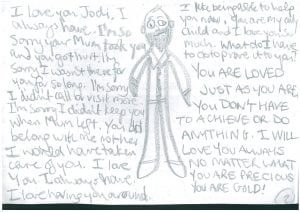 I love you Jodi, I
always have. I'm so
sorry your Mum took you
and you got hurt. I'm
sorry I wasn't there for
you for so long. I'm sorry
I didn't call or visit more.
I'm sorry I didn't keep you
when Mum left. You did
belong with me not her
I would have taken
care of you. I love
You. I always have
I love having you around.
I like being able to help
you now. You are my only
child and I love you so
much. What do I have
to do to prove it to you?
YOU ARE LOVED
JUST AS YOU ARE,
YOU DON'T HAVE
TO ACHIEVE OR DO
ANYTHING. I WILL
LOVE YOU ALWAYS
NO MATTER WHAT
YOU ARE PRECIOUS
YOU ARE GOLD!